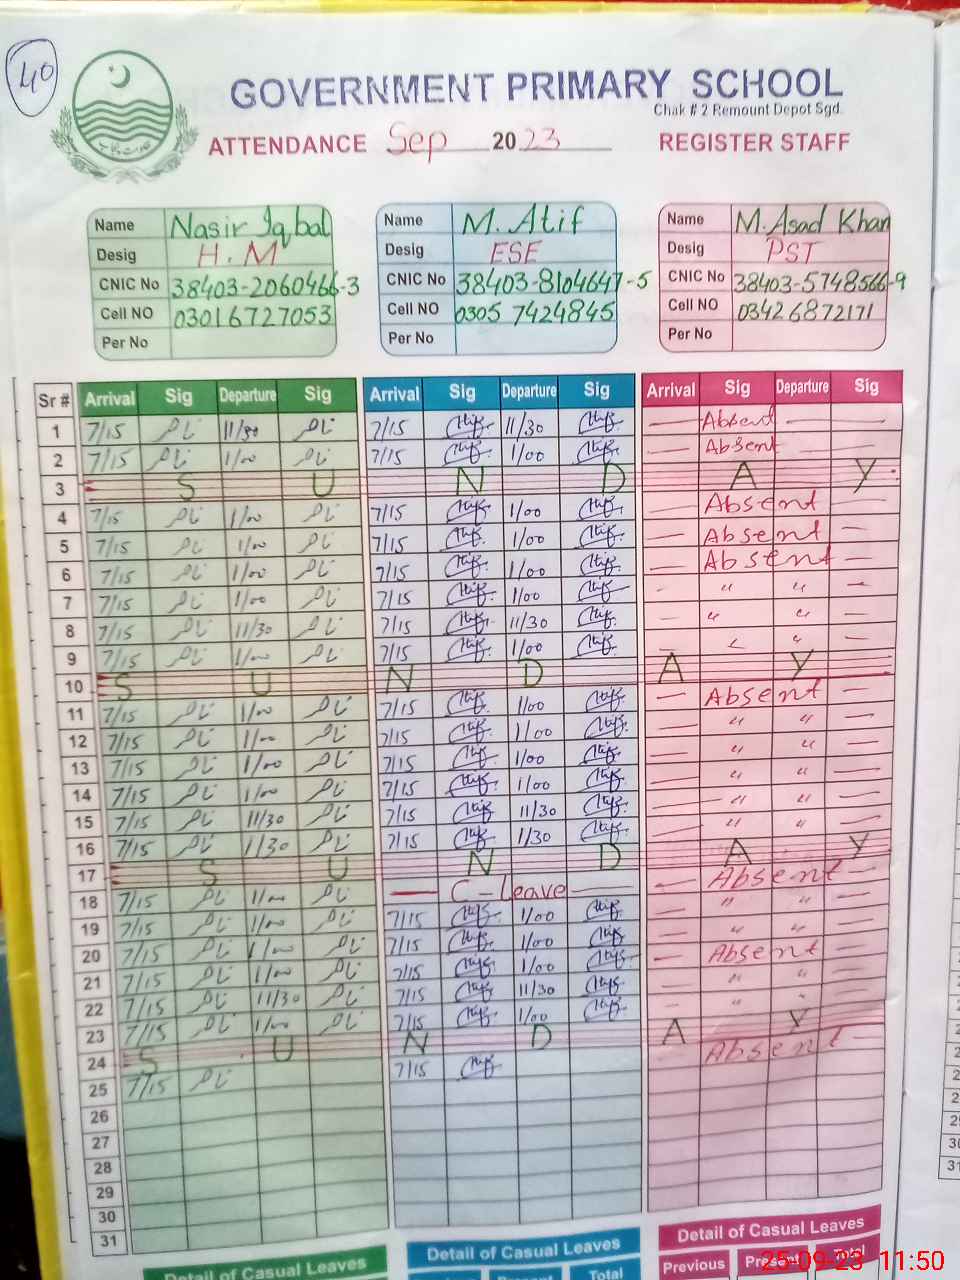 40
GOVERNMENT PRIMARY SCHOOL
Chak # 2 Remount Depot Sgd.
ATTENDANCE Sep 2023 REGISTER STAFF
Name Nasir Iqbal
Desig H.M
CNIC No 38403-2060466-3
Cell NO 03016727053
Per No
Name M. Atif
Desig ESE
CNIC No 38403-8104647-5
Cell NO 0305 7424845
Per No
Name M. Asad Khan
Desig PST
CNIC No 38403-5748566-9
Cell NO 03426872171
Per No
Sr # Arrival Sig Departure Sig Arrival Sig Departure Sig Arrival Sig Departure Sig
1 7/15 11/30 7/15 11/30 — Absent —
2 7/15 1/00 7/15 1/00 — Absent —
3 S U N D A Y
4 7/15 1/00 7/15 1/00 — Absent —
5 7/15 1/00 7/15 1/00 — Absent —
6 7/15 1/00 7/15 1/00 — Absent —
7 7/15 1/00 7/15 1/00 - " " —
8 7/15 11/30 7/15 11/30 — " " —
9 7/15 1/00 7/15 1/00 — " " —
10 S U N D A Y
11 7/15 1/00 7/15 1/00 — Absent —
12 7/15 1/00 7/15 1/00 — " " —
13 7/15 1/00 7/15 1/00 — " " —
14 7/15 1/00 7/15 1/00 — " " —
15 7/15 11/30 7/15 11/30 — " " —
16 7/15 1/30 7/15 1/30 — " " —
17 S U N D A Y
18 7/15 1/00 — C-Leave — — Absent —
19 7/15 1/00 7/15 1/00 — " " —
20 7/15 1/00 7/15 1/00 — " " —
21 7/15 1/00 7/15 1/00 — Absent —
22 7/15 11/30 7/15 11/30 — " " —
23 7/15 1/00 7/15 1/00 — " " —
24 S U N D A Y
25 7/15 7/15 Absent —
26
27
28
29
30
31
Detail of Casual Leaves
Detail of Casual Leaves
Present Total
Detail of Casual Leaves
Previous Present Total
25-09-23 11:50